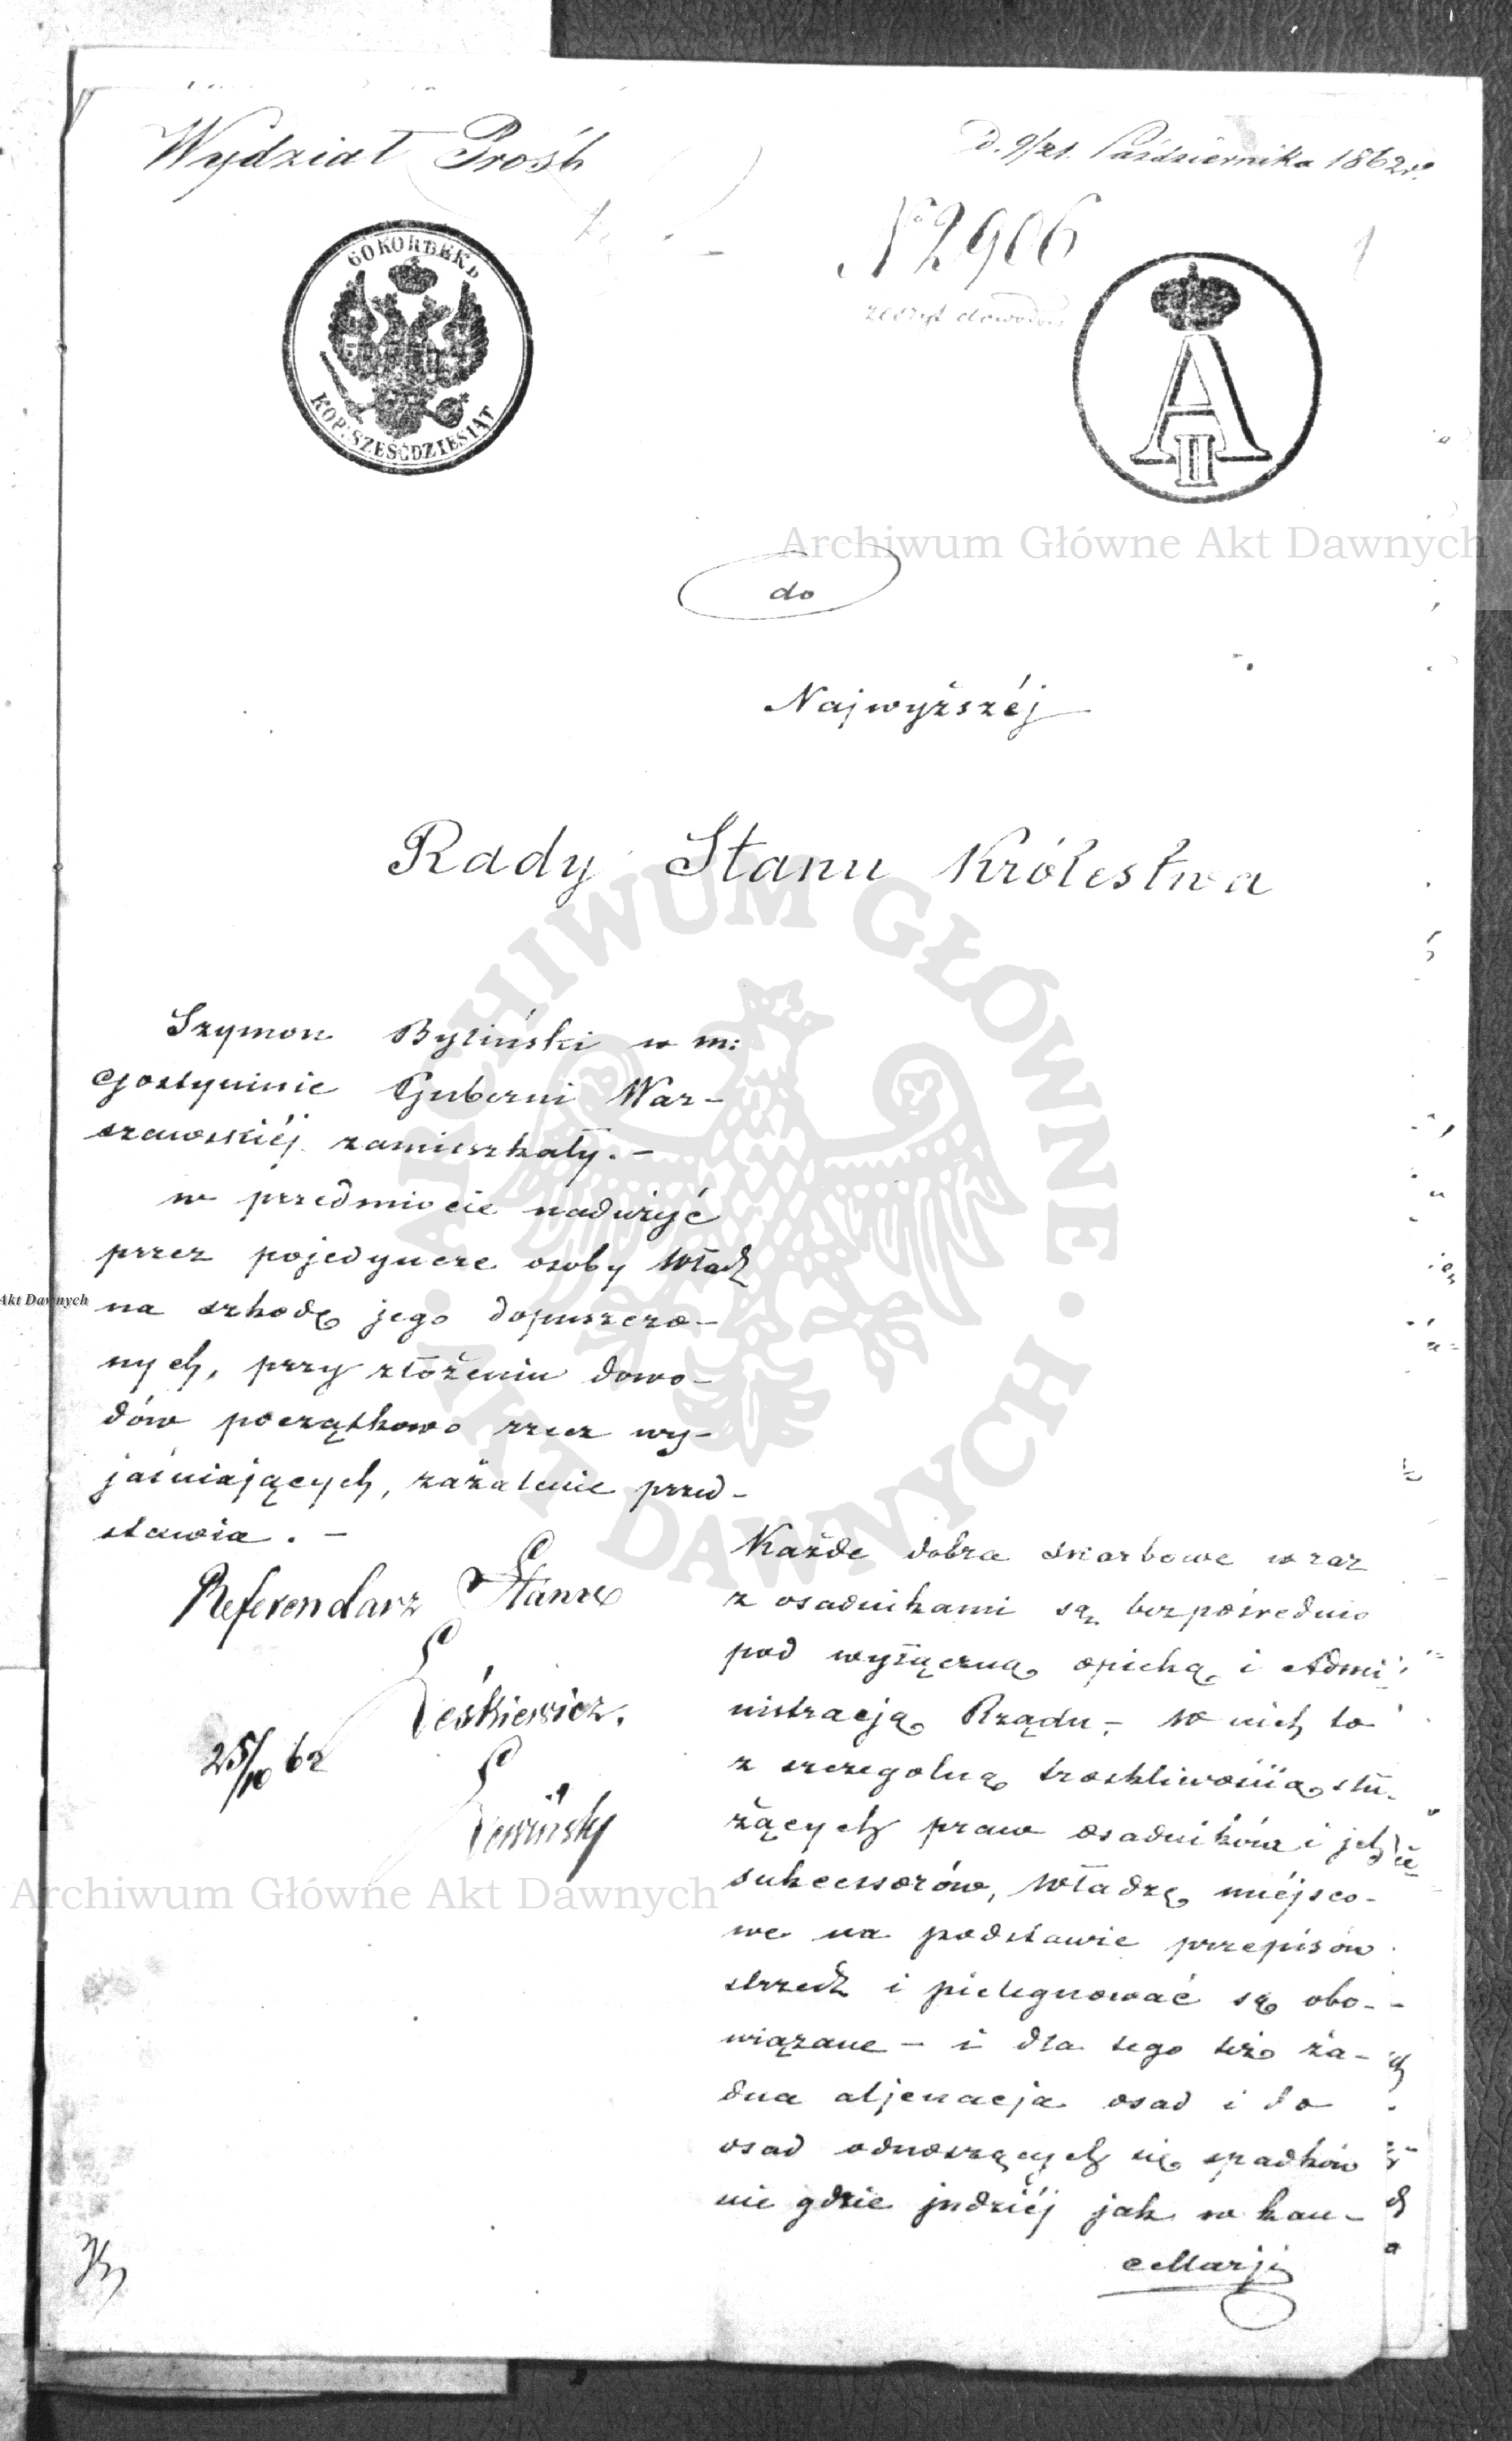 Wydział Prośb
D. 9/21. Października 1862 r.
№ 2906
zeszyt dowodów
1
60 КОПѢЕКЪ
KOP: SZEŚĆDZIESIĄT
A II
Archiwum Główne Akt Dawnych
do
Najwyższéj
Rady Stanu Królestwa
ARCHIWUM GŁÓWNE
AKT DAWNYCH
Szymon Byliński w m:
Gostyninie Guberni War-
szawskiéj zamieszkały. -
w przedmiocie nadużyć
przez pojedyncze osoby Władz
na szkodę jego dopuszczo-
nych, przy złożeniu dowo-
dów początkowo rzecz wy-
jaśniających, zażalenie przed-
stawia. -
Akt Dawnych
Referendarz Stanu
Leśkiewicz.
25/10 62
Każde dobra skarbowe wraz
z osadnikami są bezpośrednio
pod wyłączną opieką i Admi
nistracją Rządu, - w nich to
z szczególną troskliwością słu-
żących praw osadników i jch
sukcessorów, Władze miéjsco-
we na podstawie przepisów
strzedz i pielęgnować są obo-
wiązane - i dla tego też ża-
dna aljenacja osad i do
osad odnoszących się spadków
nie gdzie jndziéj jak w kan-
cellarji
Archiwum Główne Akt Dawnych